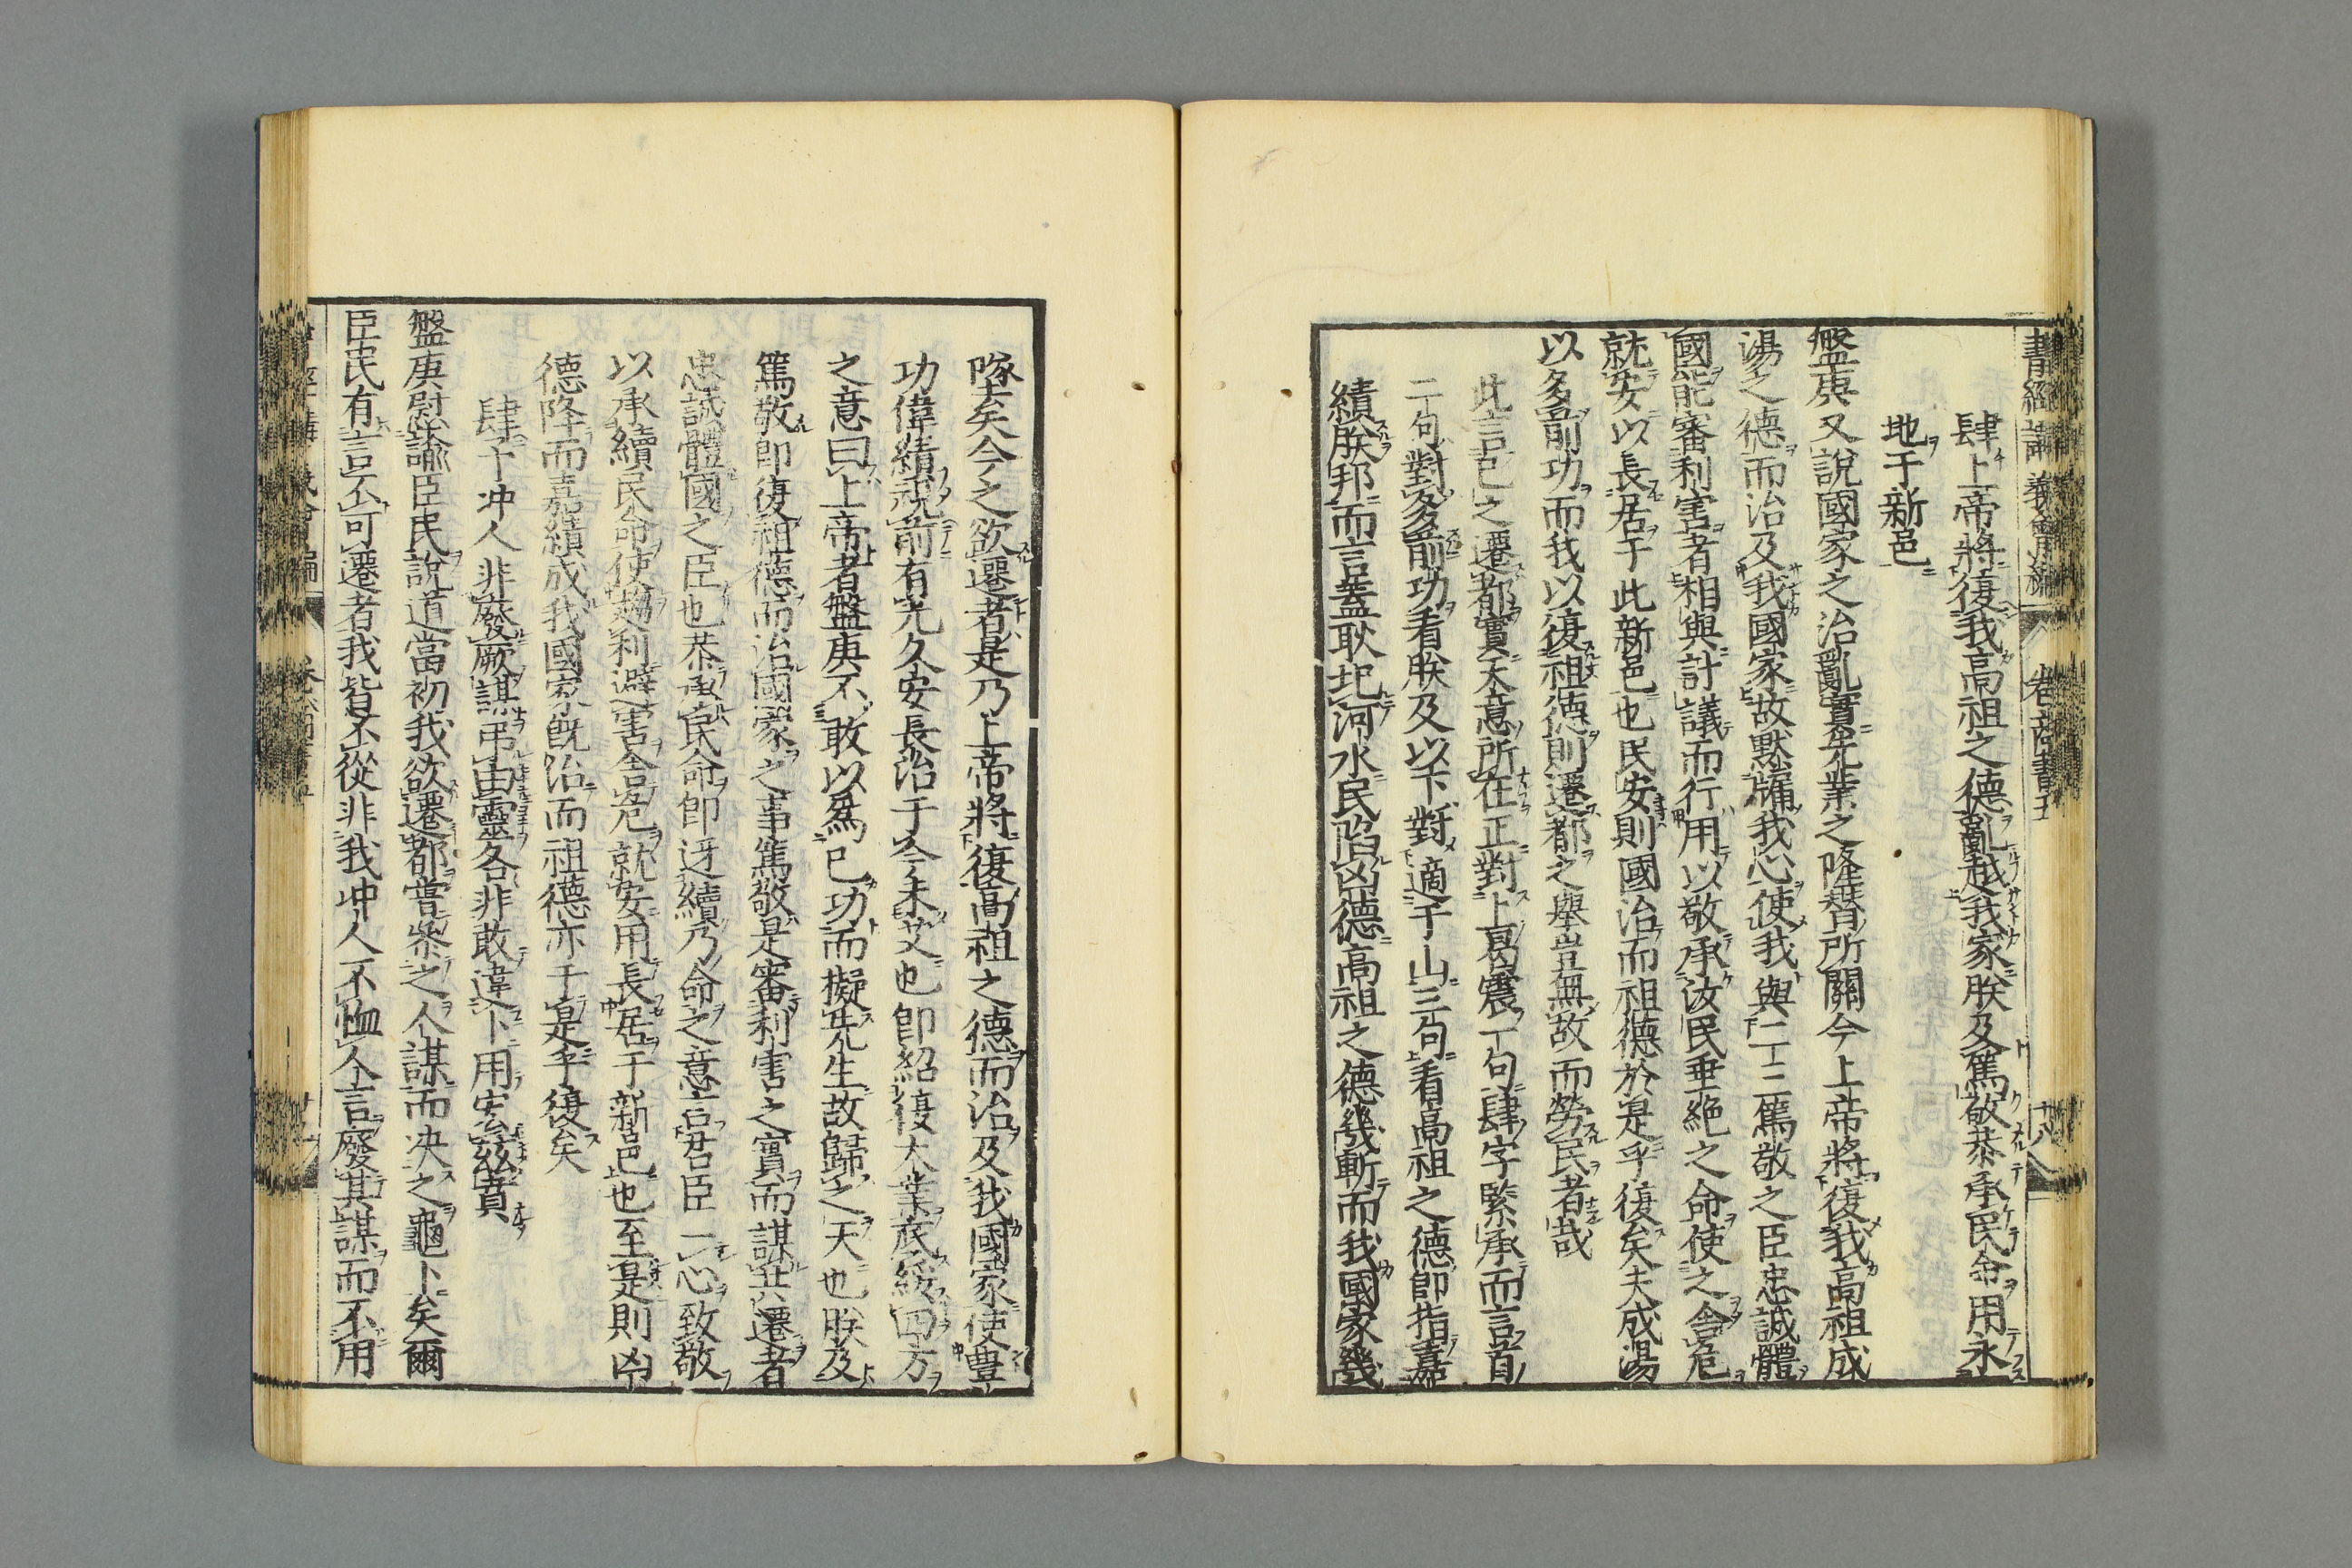 書經講義會編 卷 商書五 十八
肆上帝將復我高祖之德亂越我家朕及篤敬恭承民命用永
地于新邑
盤庚又說國家之治亂實先業之隆替所關今上帝將復我高祖成
湯之德而治及我國家故默牖我心使我與一二篤敬之臣忠誠體
國能審利害者相與計議而行用以敬承汝民垂絕之命使之舍危
就安以長居于此新邑也民安則國治而祖德於是乎復矣夫成湯
以多前功而我以復祖德則遷都之舉豈無故而勞民者哉
此言已之遷都實天意所在正對上曷震一句肆字緊承而言首
二句對多前功看朕及以下對適于山三句看高祖之德即指嘉
績朕邦而言蓋耿圯河水民陷凶德高祖之德幾斬而我國家幾
隊矣今之欲遷者是乃上帝將復高祖之德而治及我國家使豊
功偉績視前有光久安長治于今未艾也即紹復大業底綏四方
之意曰上帝者盤庚不敢以爲已功而擬先生故歸之天也朕及
篤敬即復祖德而治國家之事篤敬是審利害之實而謀共遷者
忠誠體國之臣也恭承民命即迓續乃命之意言君臣一心致敬
以承續民命使趨利避害舍危就安用長居于新邑也至是則凶
德降而嘉績成我國家旣治而祖德亦于是乎復矣
肆予冲人非廢厥謀弔由靈各非敢違卜用宏茲賁
盤庚慰諭臣民說道當初我欲遷都嘗參之人謀而决之龜卜矣爾
臣民有言不可遷者我皆不從非我冲人不恤人言廢其謀而不用